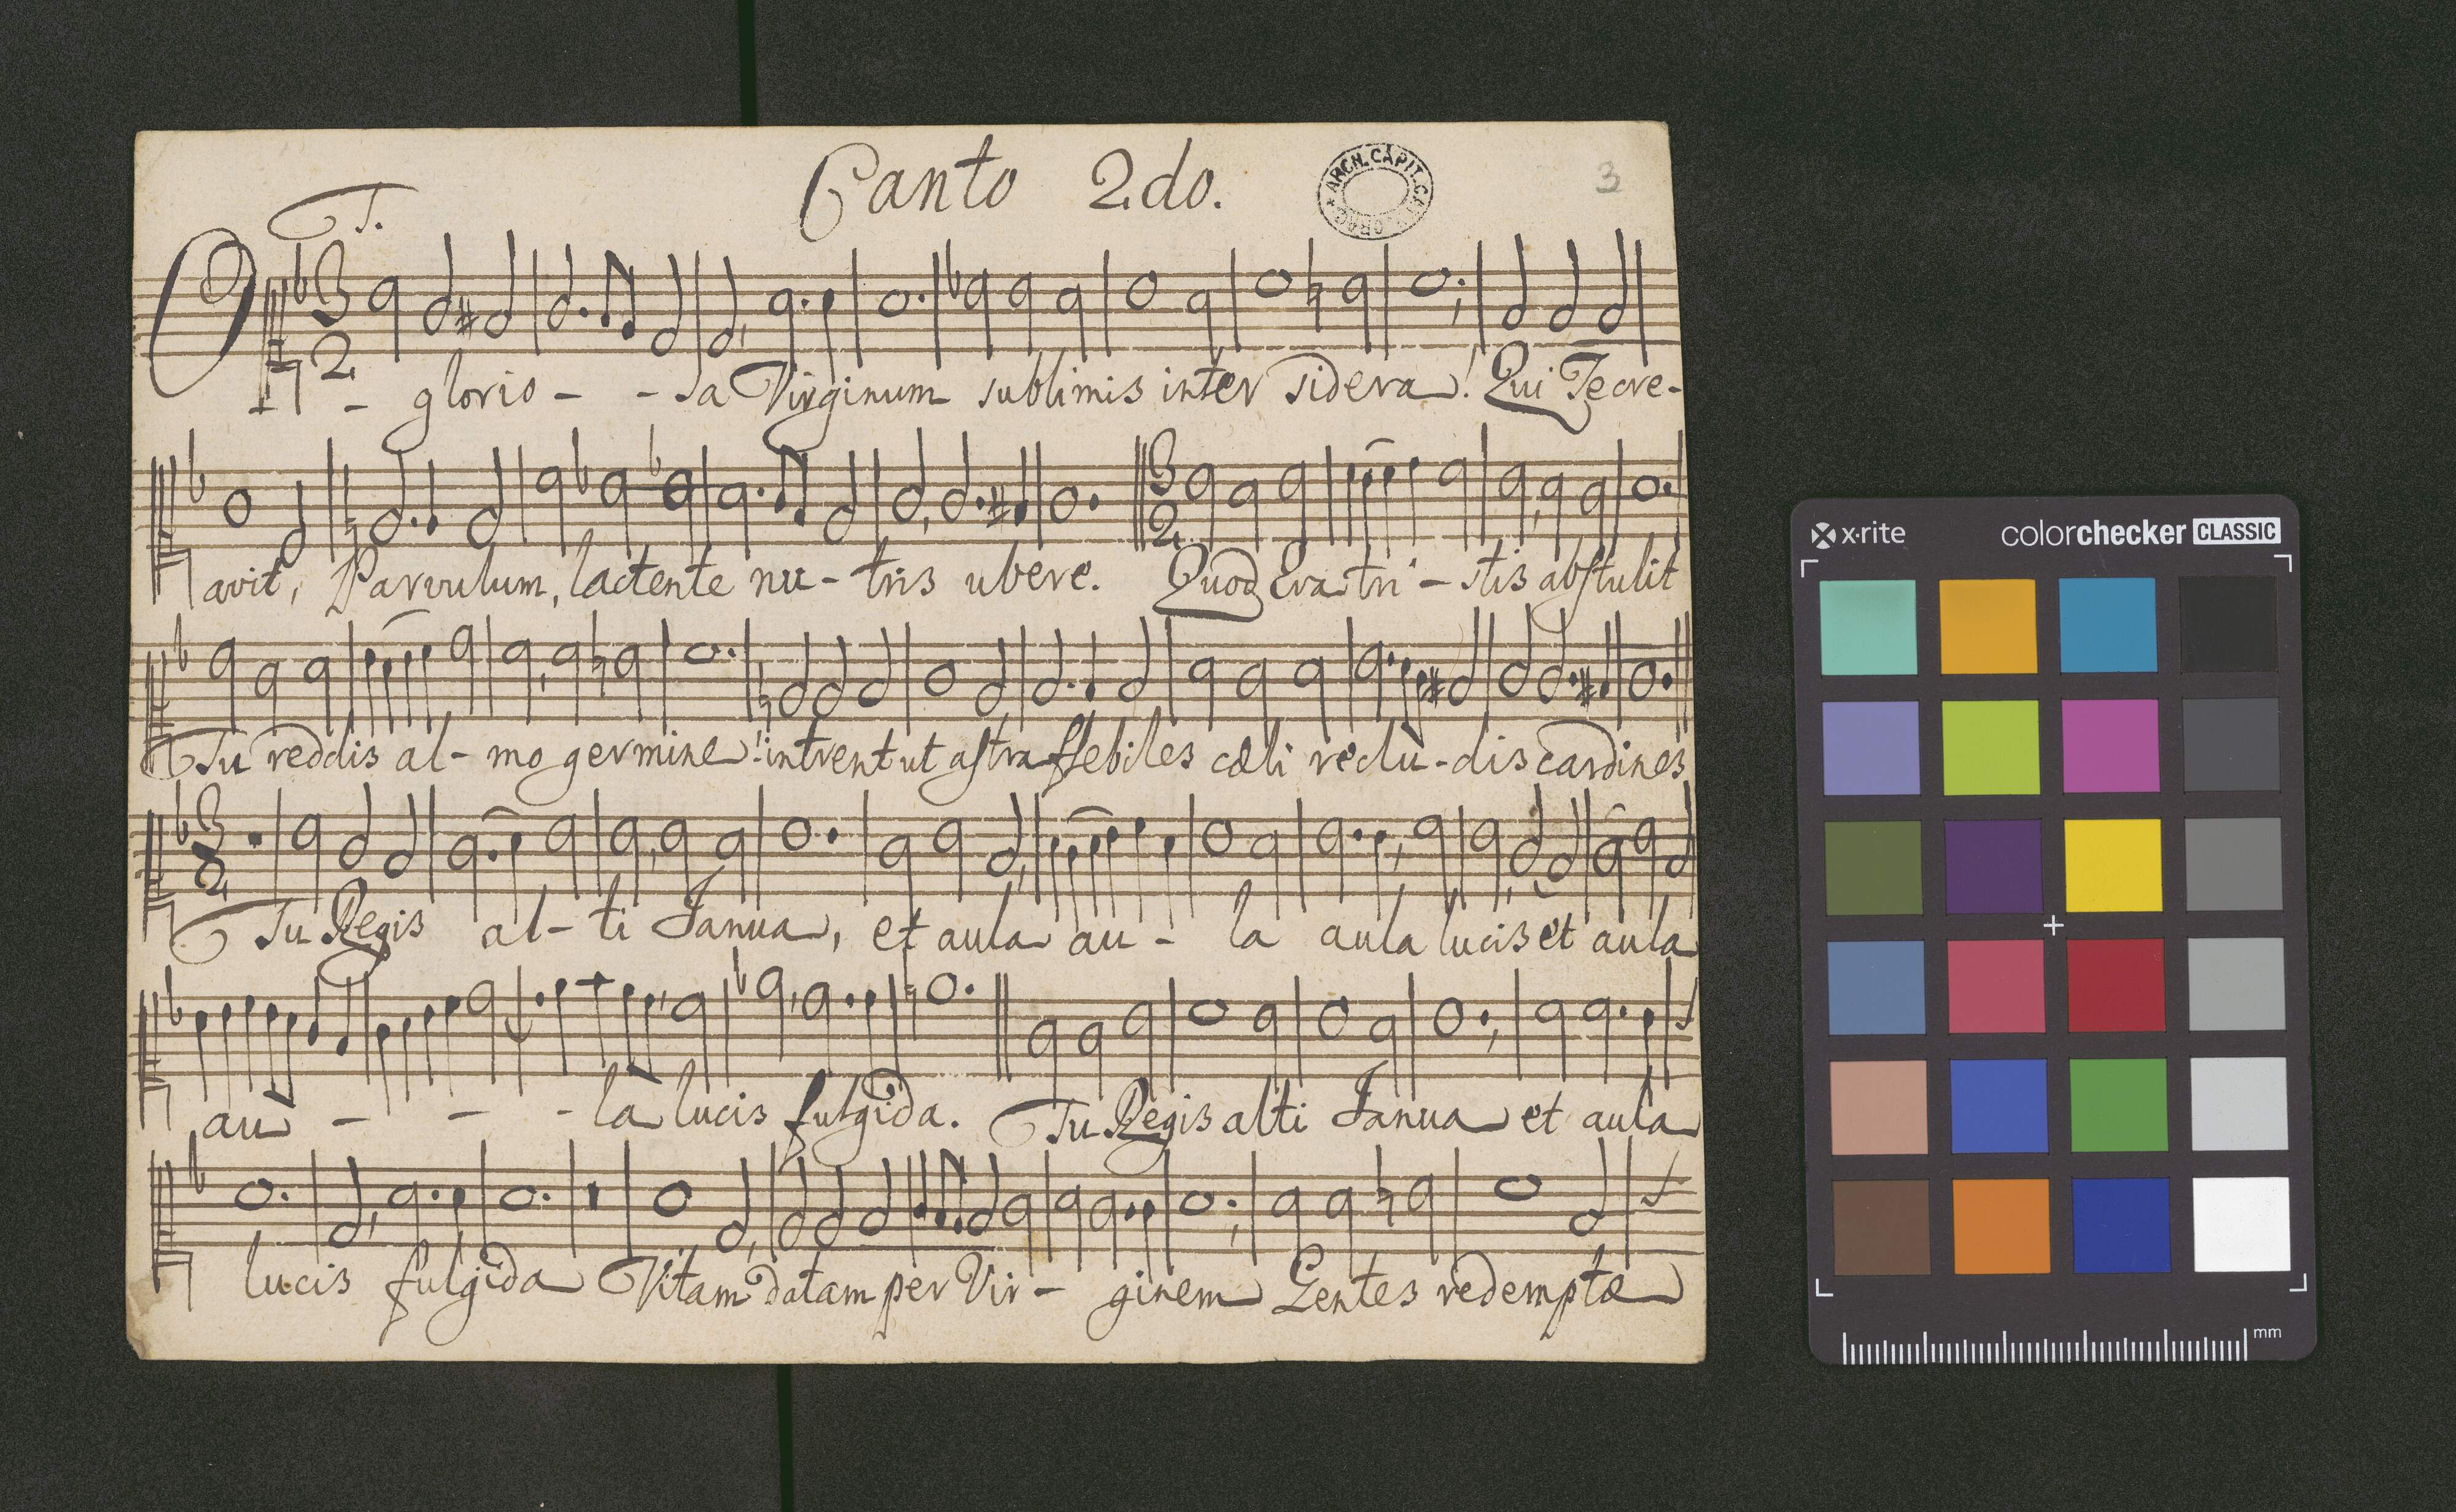 Canto 2do.
ARCH. CAPIT.
3
T.
3
2
O - glorio - - sa Virginum sublimis inter sidera! Qui Te cre-
3
2
avit, Parvulum, lactente nu - tris ubere. Quod Eva tri - stis abstulit
Tu reddis al - mo germine! intrent ut astra flebiles cæli reclu - dis cardines
3
2
Tu Regis al - ti Janua, et aula au - la aula lucis et aula
au - - - la lucis fulgida. Tu Regis alti Janua et aula
lucis fulgida Vitam datam per Vir - ginem Gentes redemptæ
x·rite
colorchecker CLASSIC
mm